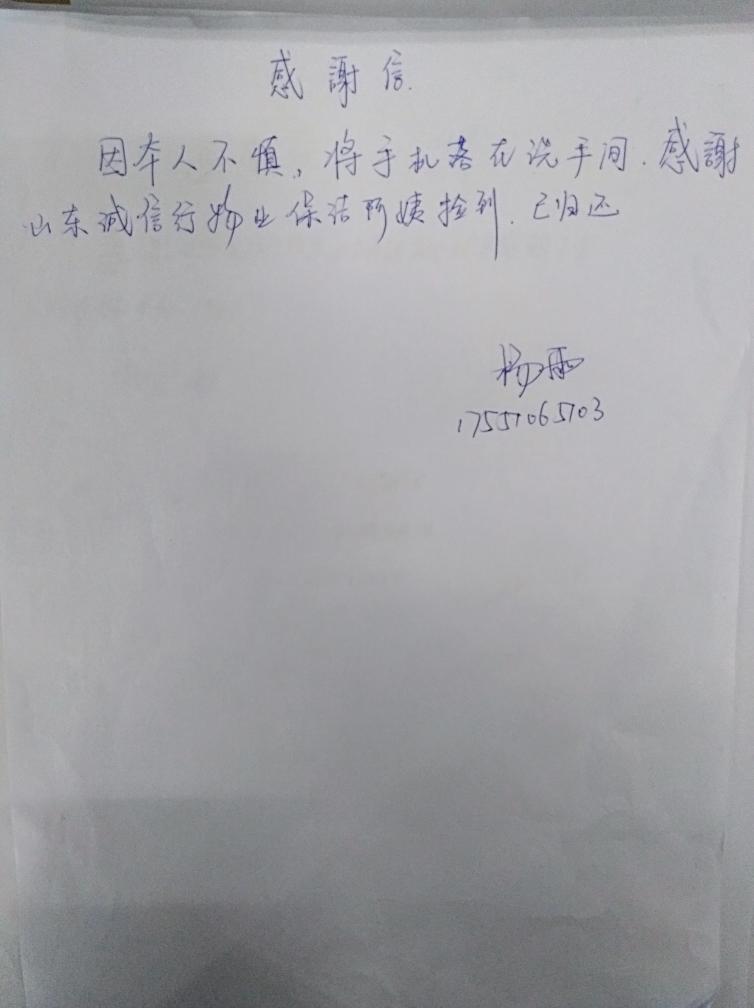 感謝信.
因本人不慎,将手机落在洗手间.感謝
山东诚信行物业保洁阿姨捡到.已归还
杨雨
17557065703